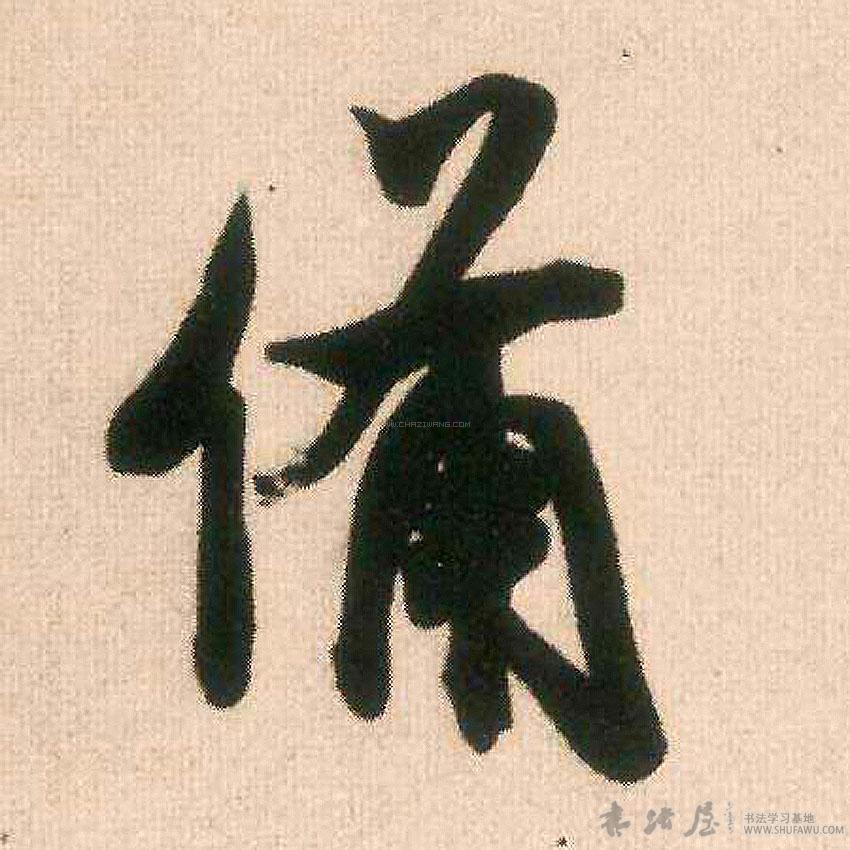 備
WWW.CHAZIWANG.COM
书法屋
书法学习基地
WWW.SHUFAWU.COM